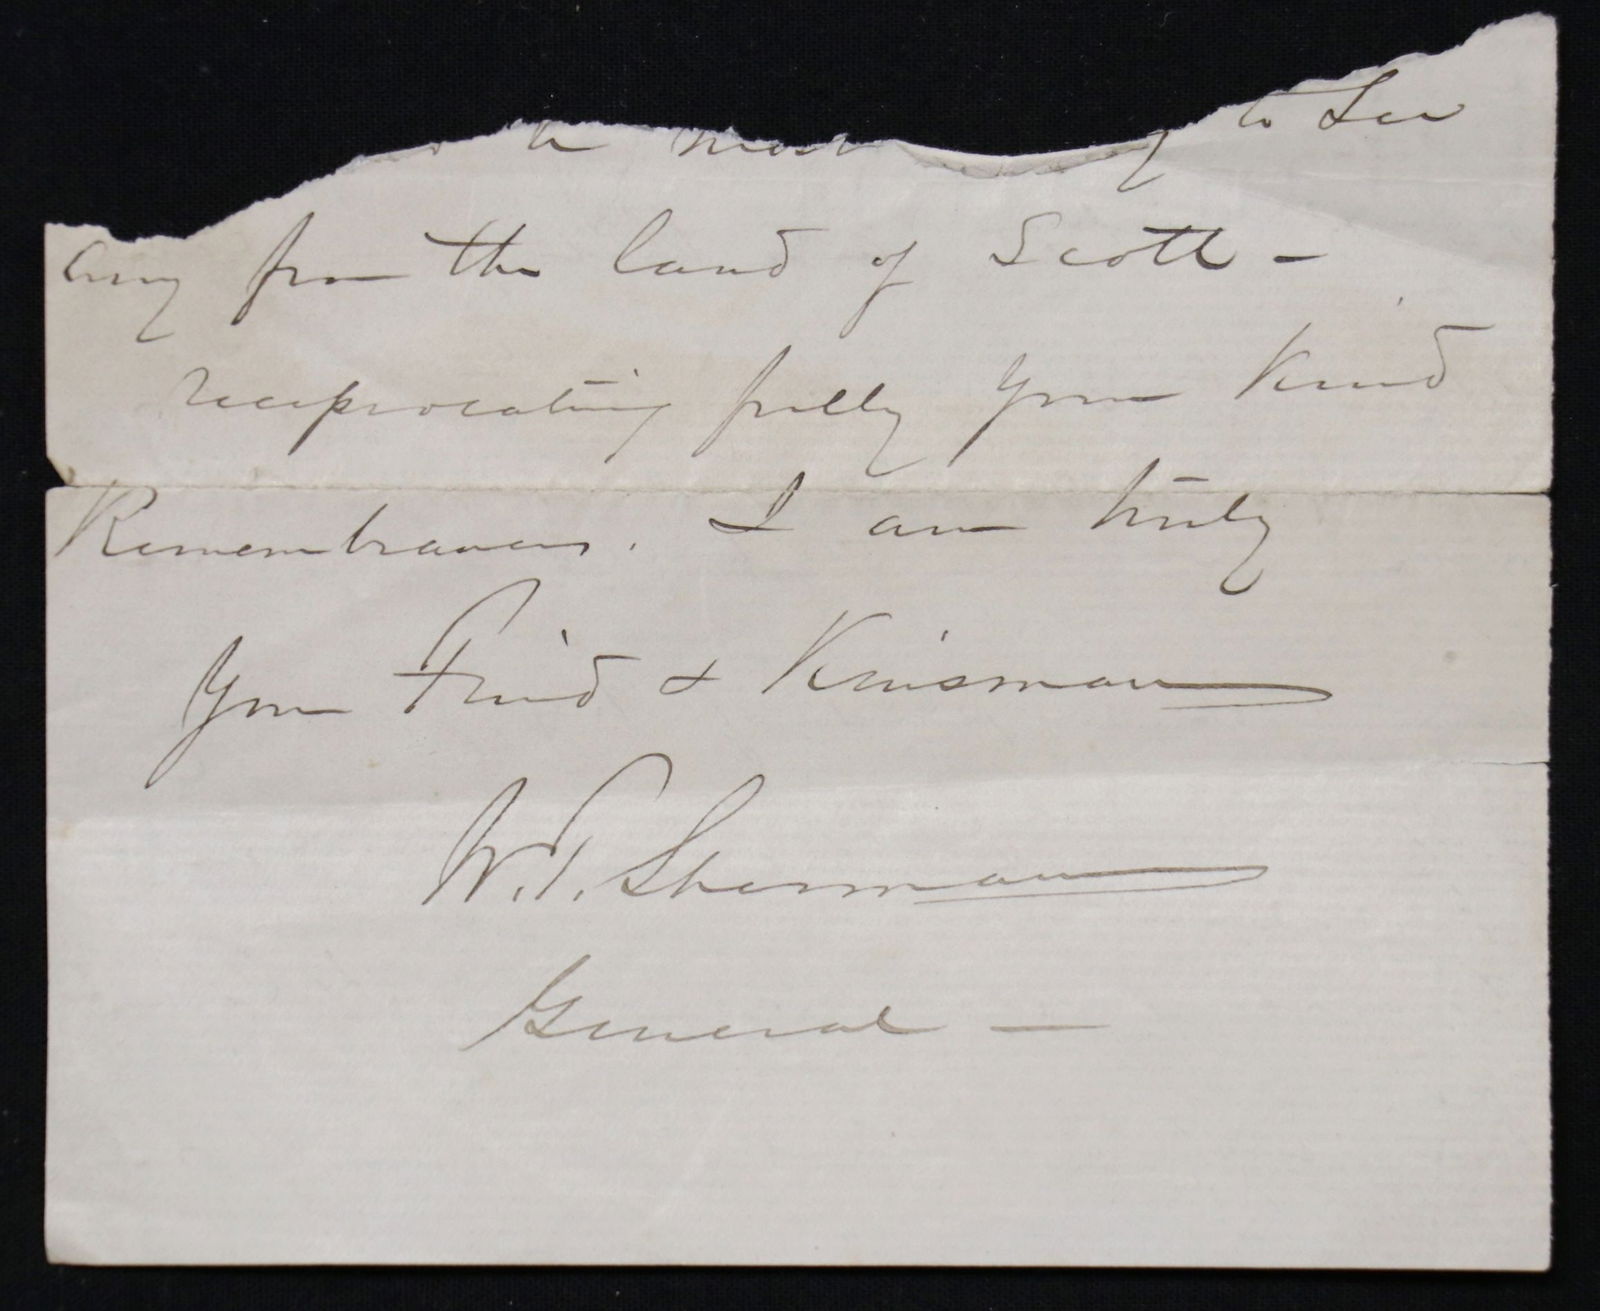 to See
any from the land of Scott -
reciprocating fully your kind
Remembrances. I am truly
Your Friend & Kinsman
W. T. Sherman
General -